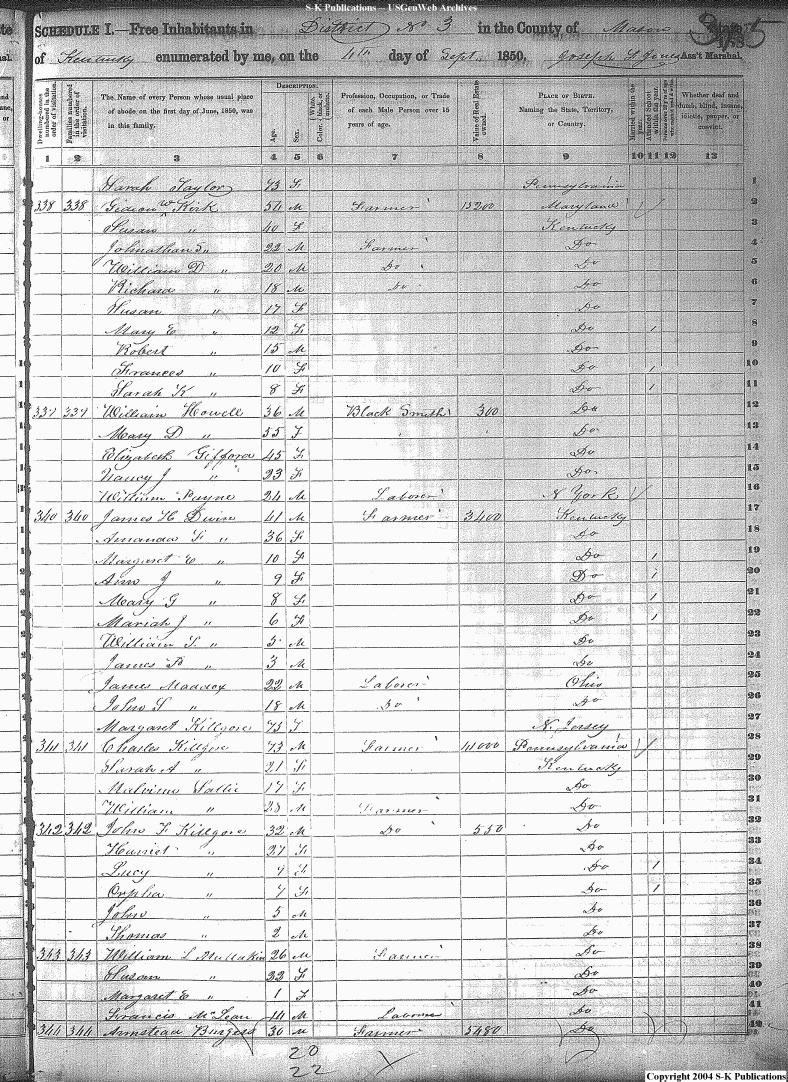 S-K Publications -- USGenWeb Archives
SCHEDULE I.—Free Inhabitants in District No 3 in the County of Mason State
of Kentucky enumerated by me, on the 4th day of Sept 1850, Joseph Ass't Marshal.
DESCRIPTION.
Dwelling-houses numbered in the order of visitation. Families numbered in the order of visitation. The Name of every Person whose usual place of abode on the first day of June, 1850, was in this family. Age. Sex. Color Profession, Occupation, or Trade of each Male Person over 15 years of age. Value of Real Estate owned. PLACE OF BIRTH. Naming the State, Territory, or Country. Married within the year. Attended School within the year. Whether deaf and dumb, blind, insane, idiotic, pauper, or convict.
1 2 3 4 5 6 7 8 9 10 11 12 13
Sarah Taylor 73 F Pennsylvania 1
338 338 Gideon W Kirk 54 M Farmer 13200 Maryland / 2
Susan " 40 F Kentucky 3
Johnathan S " 22 M Farmer Do 4
William D " 20 M Do Do 5
Richard " 18 M Do Do 6
Susan " 17 F Do 7
Mary E " 12 F Do 1 8
Robert " 15 M Do 9
Frances " 10 F Do 1 10
Sarah K " 8 F Do 1 11
339 339 William Howell 36 M Black Smith 300 Do 12
Mary D " 55 F Do 13
Elizabeth Gifford 45 F Do 14
Nancy J " 23 F Do 15
William Payne 24 M Laborer N York / 16
340 340 James H 41 M Farmer 3400 Kentucky 17
Amanda F " 36 F Do 18
Margaret E " 10 F Do 1 19
Ann J " 9 F Do 1 20
Mary G " 8 F Do 1 21
Mariah J " 6 F Do 1 22
William S " 5 M Do 23
James " 3 M Do 24
James Maddox 22 M Laborer Ohio 25
John S " 18 M Do Do 26
Margaret Killgore 75 F N. Jersey 27
341 341 Charles Killgore 73 M Farmer 41000 Pennsylvania / 28
Sarah A " 21 F Kentucky 29
Malvina 17 F Do 30
William " 28 M Farmer Do 31
342 342 John F Killgore 32 M Do 550 Do 32
Harriet " 27 F Do 33
Lucy " 9 F Do 1 34
Orpha " 7 F Do 1 35
John " 5 M Do 36
Thomas " 2 M Do 37
343 343 William L Mullakin 26 M Farmer Do 38
Susan " 22 F Do 39
Margaret E " 1 F Do 40
Francis McLean 14 M Laborer Do 41
344 344 Armstead Burgess 30 M Farmer 5480 Do 42
20
22
Copyright 2004 S-K Publications